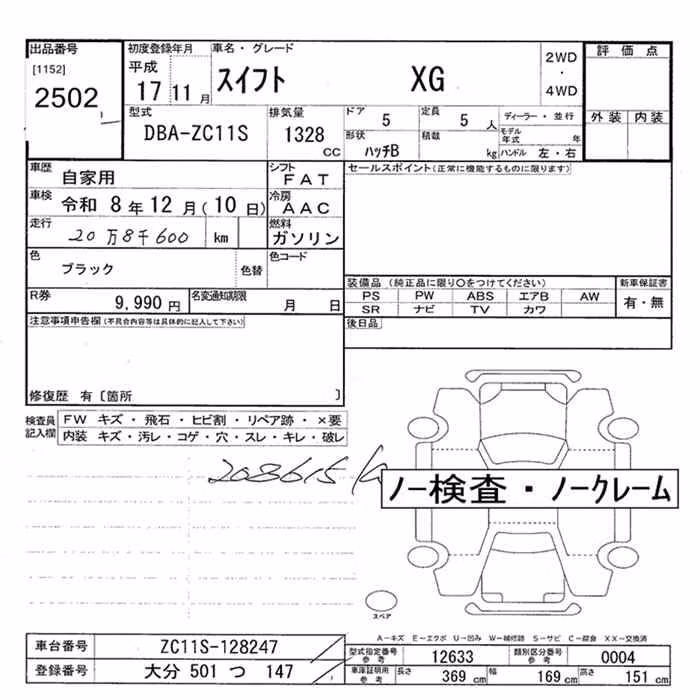 出品番号
[1152]
2502
初度登録年月
平成
17 11 月
車名・グレード
スイフト XG
2WD
・
4WD
評価点
外装 内装
型式
DBA-ZC11S
排気量
1328
CC
ドア
5
定員
5 人
ディーラー・並行
形状
ハッチB
積載
kg
モデル年式 年
ハンドル 左・右
車歴
自家用
シフト
FAT
セールスポイント(正常に機能するものに限ります)
車検
令和 8 年 12 月(10 日)
冷房
AAC
走行
20万8千600 km
燃料
ガソリン
色
ブラック
色替
色コード
装備品(純正品に限り○をつけてください)
新車保証書
PS PW ABS エアB AW
SR ナビ TV カワ
有・無
R券
9,990 円
名変通知期限
月 日
後日品
注意事項申告欄(不具合内容等は具体的に記入して下さい)
修復歴 有〔箇所 〕
検査員記入欄
FW キズ・飛石・ヒビ割・リペア跡・×要
内装 キズ・汚レ・コゲ・穴・スレ・キレ・破レ
208615 k
ノー検査・ノークレーム
スペア
A-キズ E-エクボ U-凹み W-補修跡 S-サビ C-腐食 XX-交換済
車台番号
ZC11S-128247
型式指定番号
参考
12633
類別区分番号
参考
0004
登録番号
大分 501 つ 147
車庫証明用
参考
長さ
369 cm
幅
169 cm
高さ
151 cm